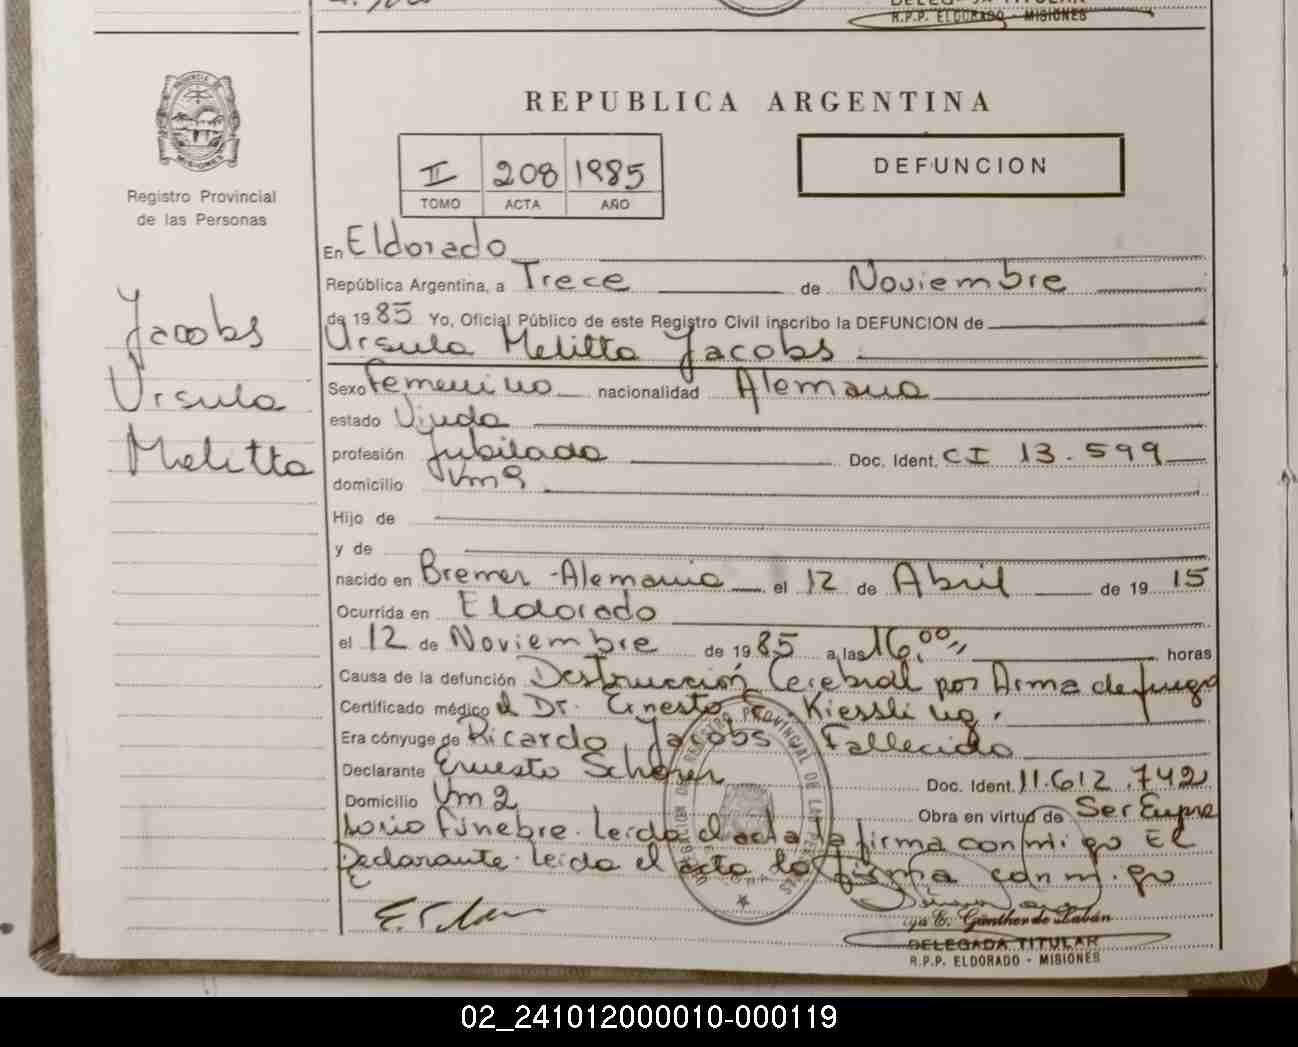 R.P.P. ELDORADO - MISIONES
PROVINCIA DE
MISIONES
Registro Provincial
de las Personas
Jacobs
Ursula
Melitta
REPUBLICA ARGENTINA
II 208 1985
TOMO ACTA AÑO
DEFUNCION
En Eldorado
República Argentina, a Trece de Noviembre
de 1985 Yo, Oficial Público de este Registro Civil inscribo la DEFUNCION de
Ursula Melitta Jacobs
Sexo Femenino nacionalidad Alemana
estado Viuda
profesión Jubilada Doc. Ident. CI 13.599
domicilio Km 9
Hijo de
y de
nacido en Bremer - Alemania el 12 de Abril de 19 15
Ocurrida en Eldorado
el 12 de Noviembre de 1985 a las 16,00 horas
Causa de la defunción Destrucción Cerebral por Arma de fuego
Certificado médico d Dr. Ernesto Kiessling.
Era cónyuge de Ricardo Jacobs Fallecido
Declarante Ernesto Scherer Doc. Ident. 11.612.742
Domicilio Km 2 Obra en virtud de Ser Empre
sorio Fúnebre. Leida el acta la firma conmigo El
Declarante. Leida el acta la firma conmigo
Günther de Labán
DELEGADA TITULAR
R.P.P. ELDORADO - MISIONES
02_241012000010-000119